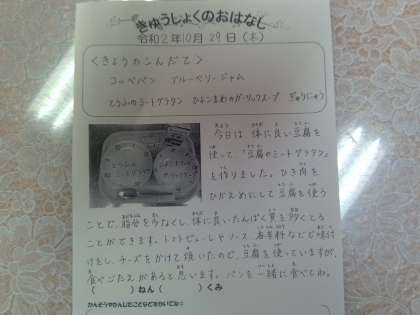 きゅうしょくのおはなし
令和2年10月29日(木)
<きょうのこんだて>
コッペパン ブルーベリージャム
とうふのミートグラタン ひよこまめのガーリックスープ ぎゅうにゅう
今日は、体に良い豆腐を
使って「豆腐のミートグラタン」
を作りました。ひき肉を
ひかえめにして豆腐を使う
ことで、脂分を少なくし、体に良いたんぱく質を多くとる
ことができます。トマトピューレやソース、香辛料などで味付
けをし、チーズをかけて焼いたので、豆腐を使っていますが、
食べごたえがあると思います。パンと一緒に食べてね。
( )ねん( )くみ
かんそうやかんじたことなどをかいてね☺